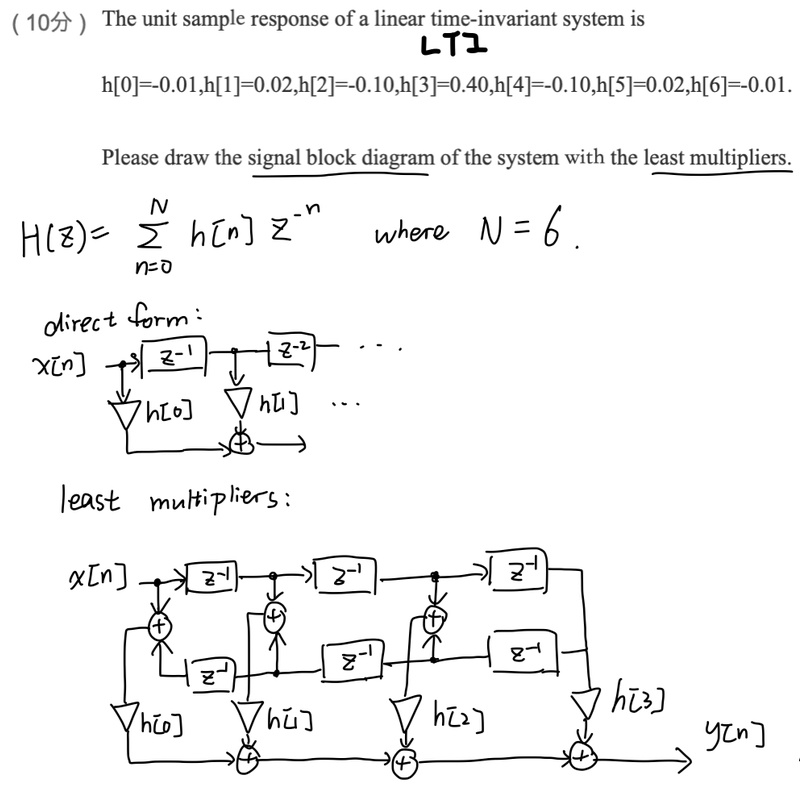 （10分） The unit sample response of a linear time-invariant system is
LTI
h[0]=-0.01,h[1]=0.02,h[2]=-0.10,h[3]=0.40,h[4]=-0.10,h[5]=0.02,h[6]=-0.01.
Please draw the signal block diagram of the system with the least multipliers.
H(z)= N Σ n=0 h[n] z⁻ⁿ where N = 6.
direct form:
x[n] z⁻¹ z⁻² ...
h[0] h[1] ...
+
least multipliers:
x[n] z⁻¹ z⁻¹ z⁻¹
+ + +
z⁻¹ z⁻¹ z⁻¹
h[0] h[1] h[2] h[3]
+ + + y[n]